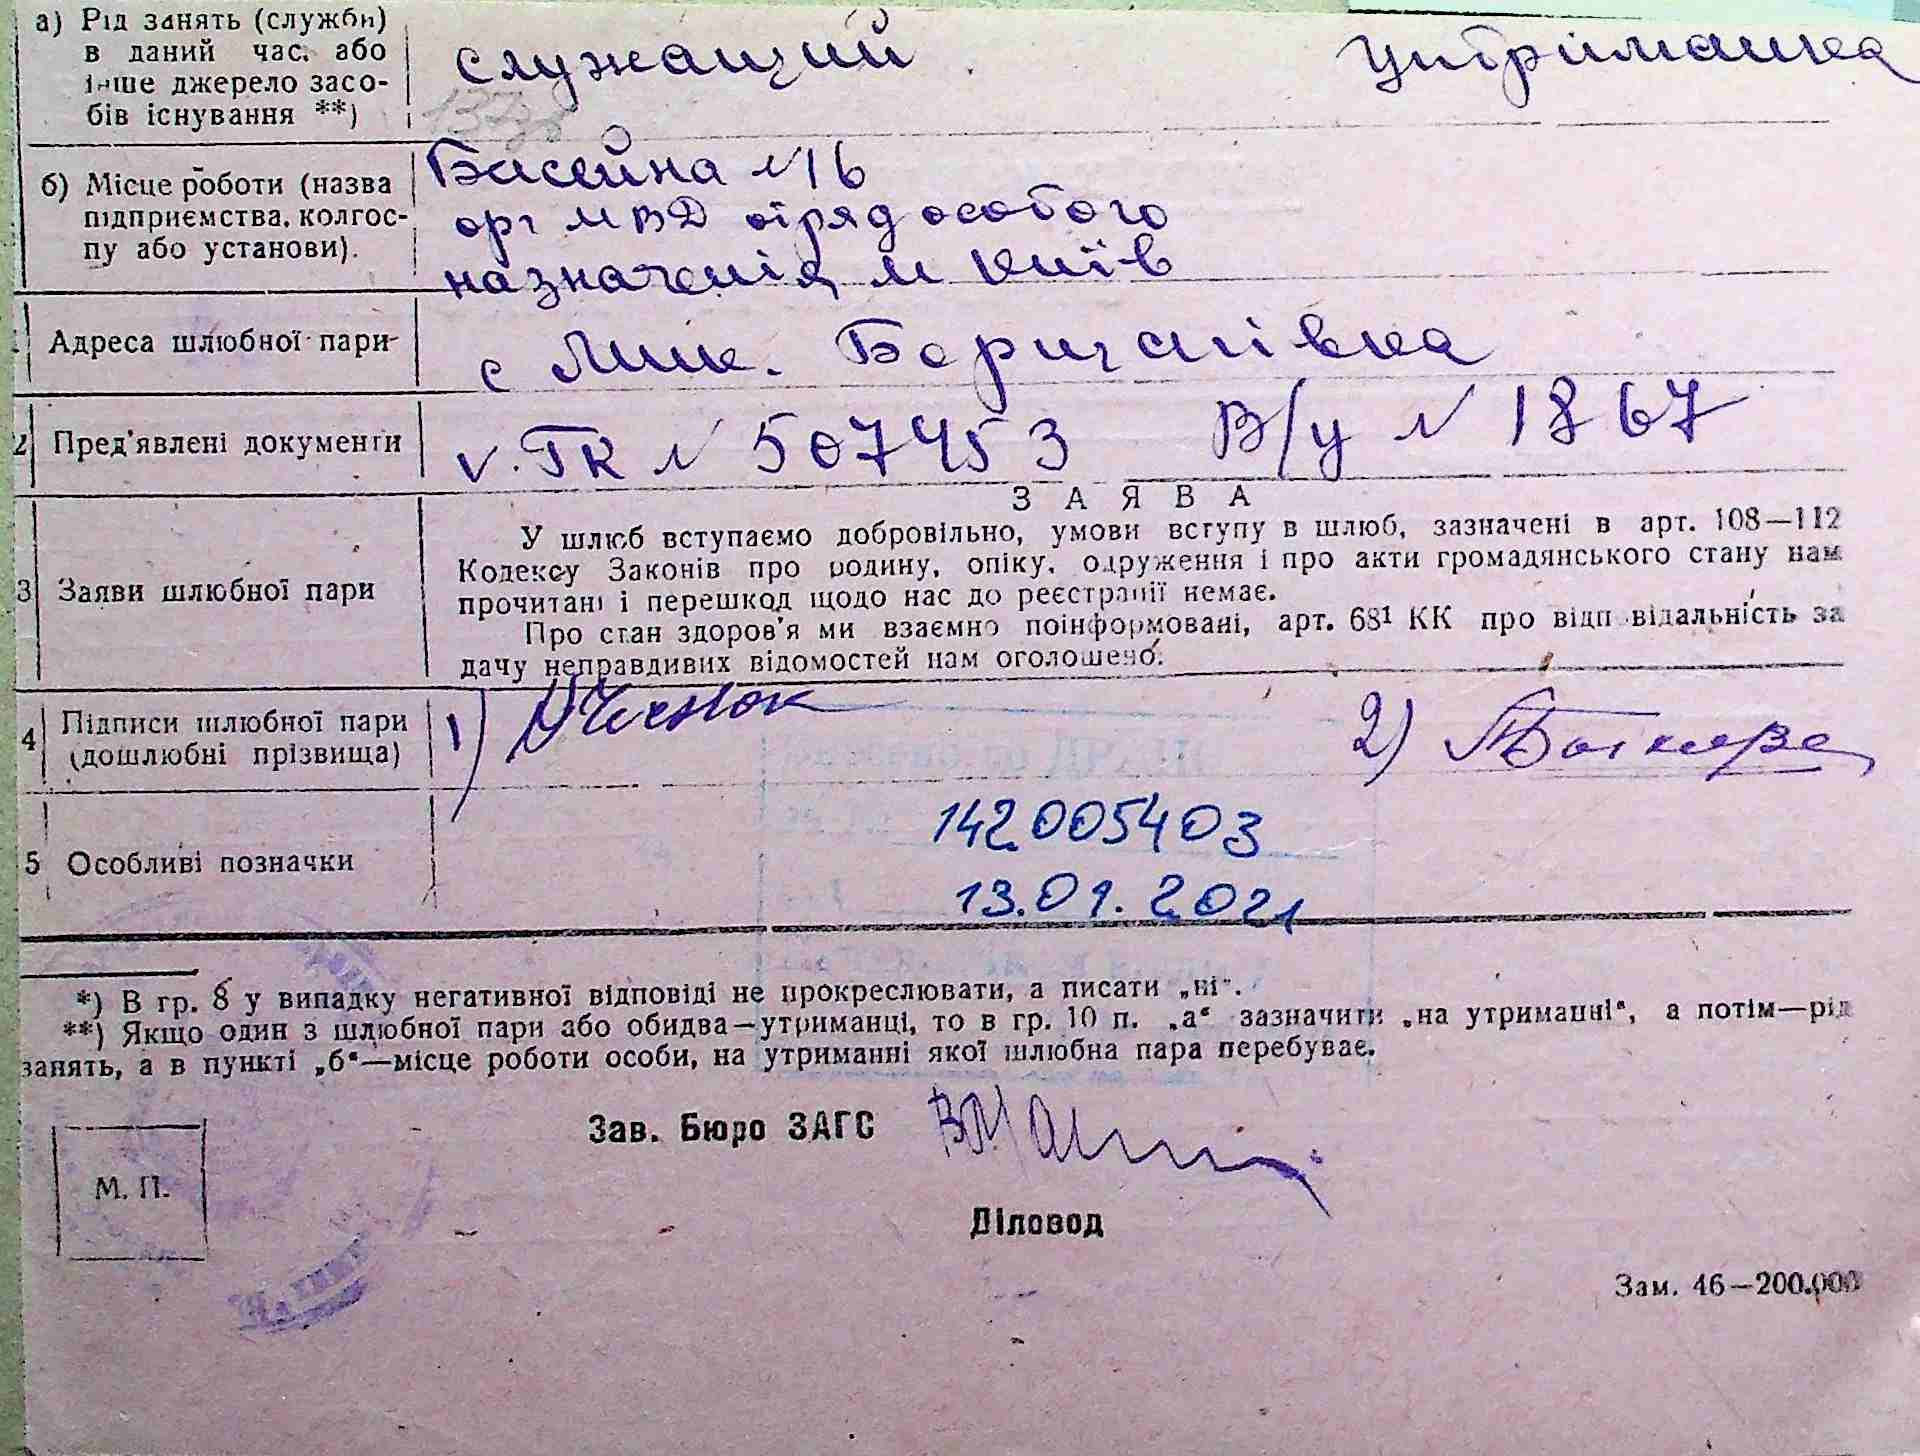 а) Рід занять (служби) в даний час, або інше джерело засобів існування **)
служащий
утриманка
б) Місце роботи (назва підприємства, колгоспу або установи).
Басейна №16
орг МВД отряд особого
назначенія м Київ
Адреса шлюбної пари
с Мик. Борщагівка
2 Пред'явлені документи
V. ТК № 507453 В/у № 1867
3 Заяви шлюбної пари
ЗАЯВА
У шлюб вступаємо добровільно, умови вступу в шлюб, зазначені в арт. 108—112
Кодексу Законів про родину, опіку, одруження і про акти громадянського стану нам
прочитані і перешкод щодо нас до реєстрації немає.
Про стан здоров'я ми взаємно поінформовані, арт. 68¹ КК про відповідальність за
дачу неправдивих відомостей нам оголошено.
4 Підписи шлюбної пари (дошлюбні прізвища)
1)
2)
5 Особливі позначки
142005403
13.01.2021
*) В гр. 8 у випадку негативної відповіді не прокреслювати, а писати „ні".
**) Якщо один з шлюбної пари або обидва—утриманці, то в гр. 10 п. „а" зазначити „на утриманні", а потім—рід
занять, а в пункті „б"—місце роботи особи, на утриманні якої шлюбна пара перебуває.
Зав. Бюро ЗАГС
М. П.
Діловод
Зам. 46—200.000